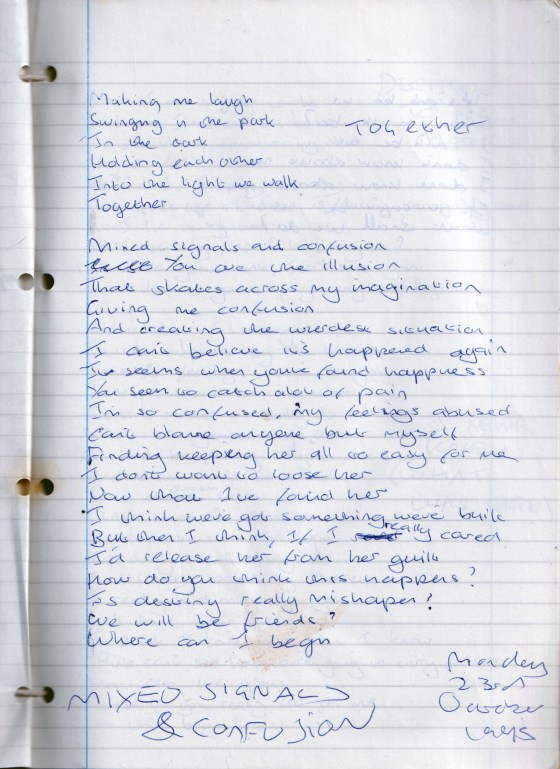 Making me laugh
Swinging in the park
Together
In the dark
Holding each other
Into the light we walk
Together
Mixed signals and confusion
You are the illusion
That skates across my imagination
Giving me confusion
And creating the weirdest situation
I can't believe it's happened again
It seems when you've found happiness
You seem to catch alot of pain
I'm so confused, my feelings abused
Can't blame anyone but myself
Finding keeping her all so easy for me
I don't want to loose her
Now that I've found her
I think we've got something we've built
But then I think, If I really cared
I'd release her from her guilt
How do you think this happens?
Is destiny really mishapen?
We will be friends?
Where can I begin
MIXED SIGNALS
& CONFUSION
Monday
23rd
October